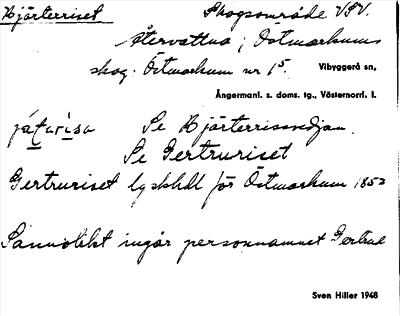 Hjärterriset Skogsområde VSV.
Återvattna; Östmarkums
skog: Östmarkum nr 1⁵. Vibyggerå sn,
Ångermanl. s. doms. tg., Västernorrl. l.
Se Hjärterrissvedjan.
Se Gertruriset
Gertruriset lgskhdl för Östmarkum 1852
Sannolikt ingår personnamnet Gertrud
Sven Hiller 1948